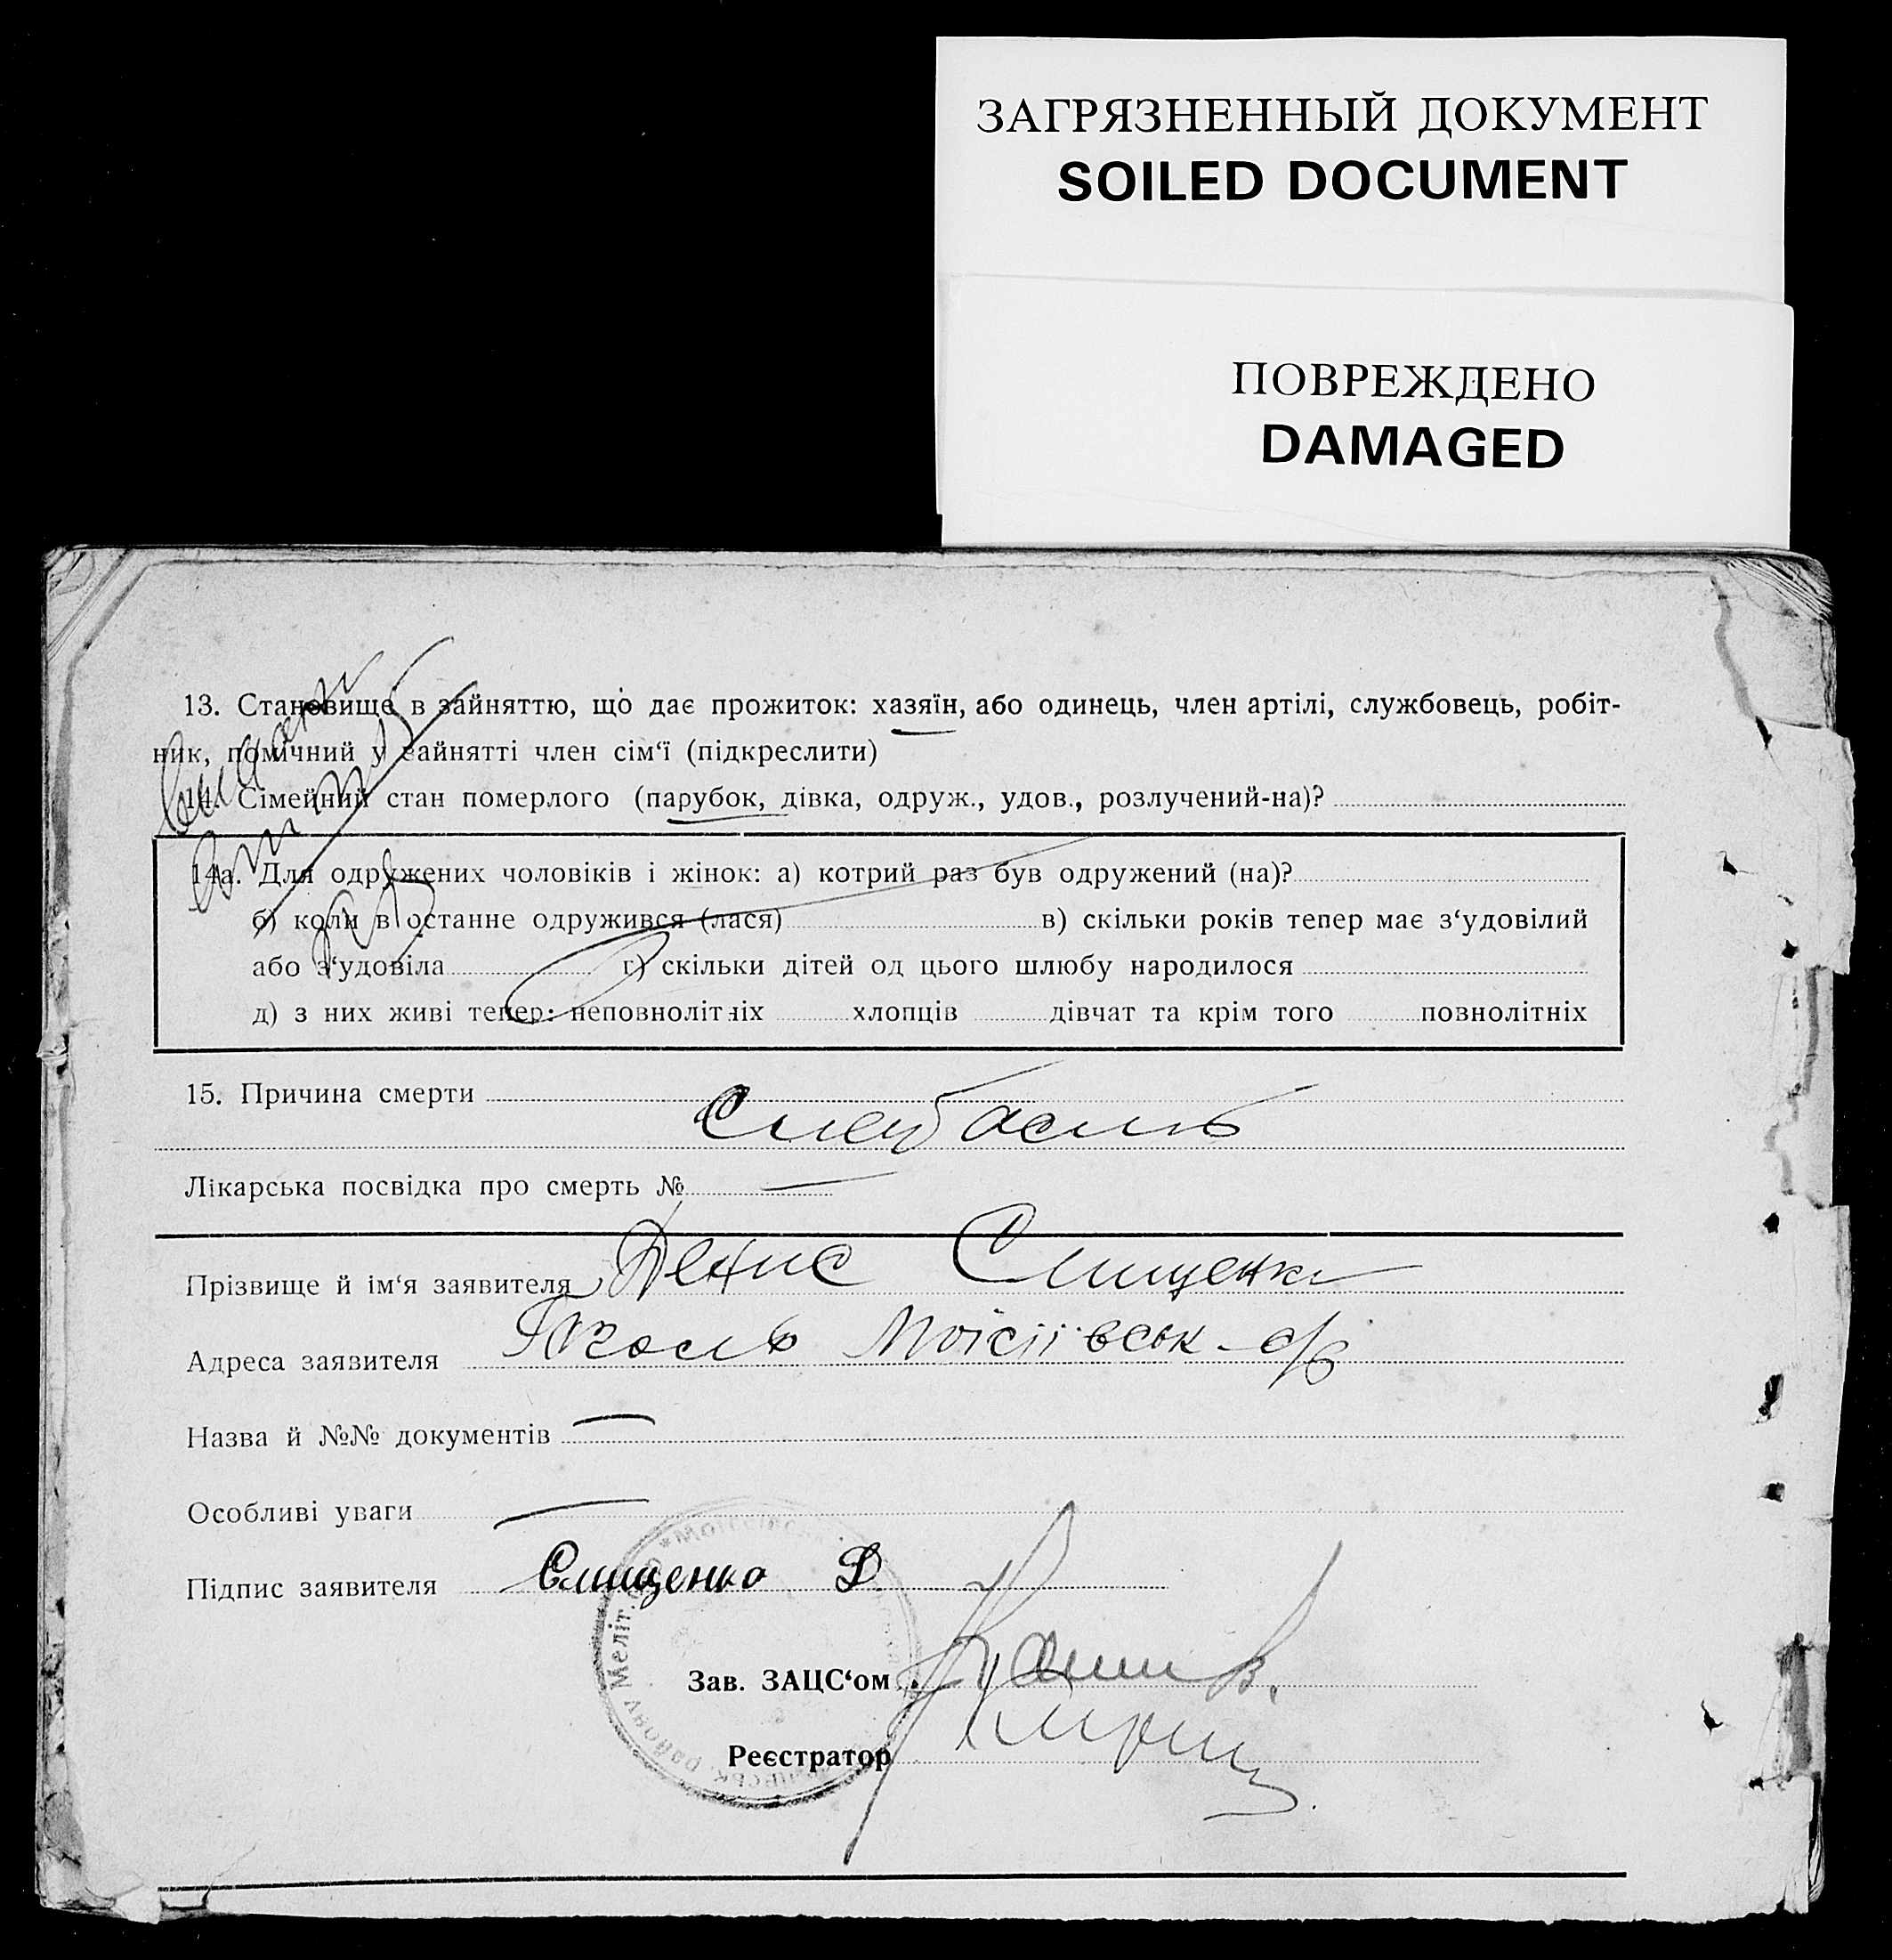 ЗАГРЯЗНЕННЫЙ ДОКУМЕНТ
SOILED DOCUMENT
ПОВРЕЖДЕНО
DAMAGED
13. Становище в зайняттю, що дає прожиток: хазяїн, або одинець, член артілі, службовець, робіт-
ник, помічний у зайнятті член сім‘ї (підкреслити)
14. Сімейний стан померлого (парубок, дівка, одруж., удов., розлучений-на)?
14а. Для одружених чоловіків і жінок: а) котрий раз був одружений (на)?
б) коли в останне одружився (лася) в) скільки років тепер має з‘удовілий
або з‘удовіла г) скільки дітей од цього шлюбу народилося
д) з них живі тепер: неповнолітніх хлопців дівчат та крім того повнолітніх
15. Причина смерти
Лікарська посвідка про смерть № —
Прізвище й ім‘я заявителя Денис Слищенко
Адреса заявителя Моісіївськ с/р
Назва й №№ документів —
Особливі уваги —
Підпис заявителя Слищенко Д
Зав. ЗАЦС‘ом
Реєстратор
району Меліт.